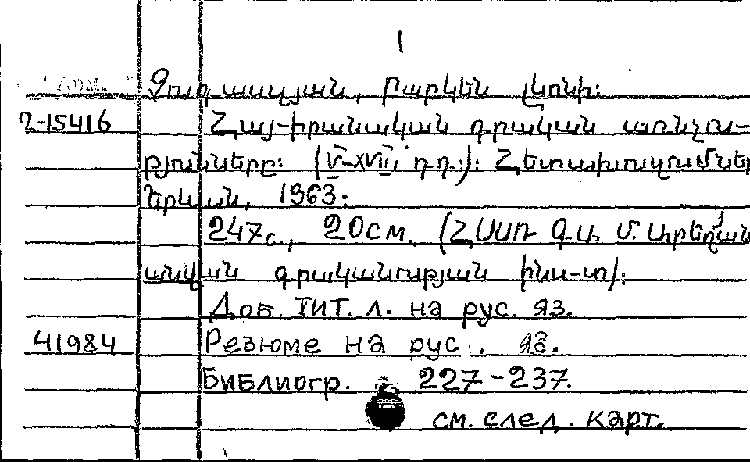 1
Չուգասզյան, Բաբկեն Լևոնի:
2-15416 Հայ-իրանական գրական առնչու-
թյունները: (V-XVIII դ.դ.): Հետախուզումներ
Երևան, 1963:
247с., 20см. (ՀՍՍՌ Գ.Ա. Մ. Աբեղյանի
անվան գրականության ինս-տ):
Доб. тит. л. на рус. яз.
41984 Резюме на рус. яз.
Библиогр. 227-237.
см. след. карт.